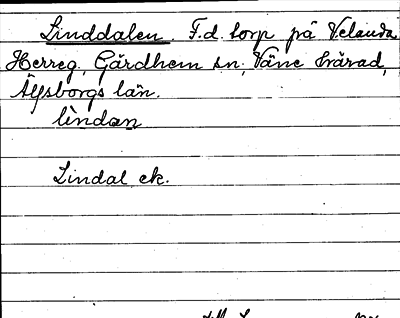 Linddalen. F.d. torp på Velanda
Herreg, Gärdhem sn, Väne härad,
Älfsborgs län.
lindan
Lindal ek.